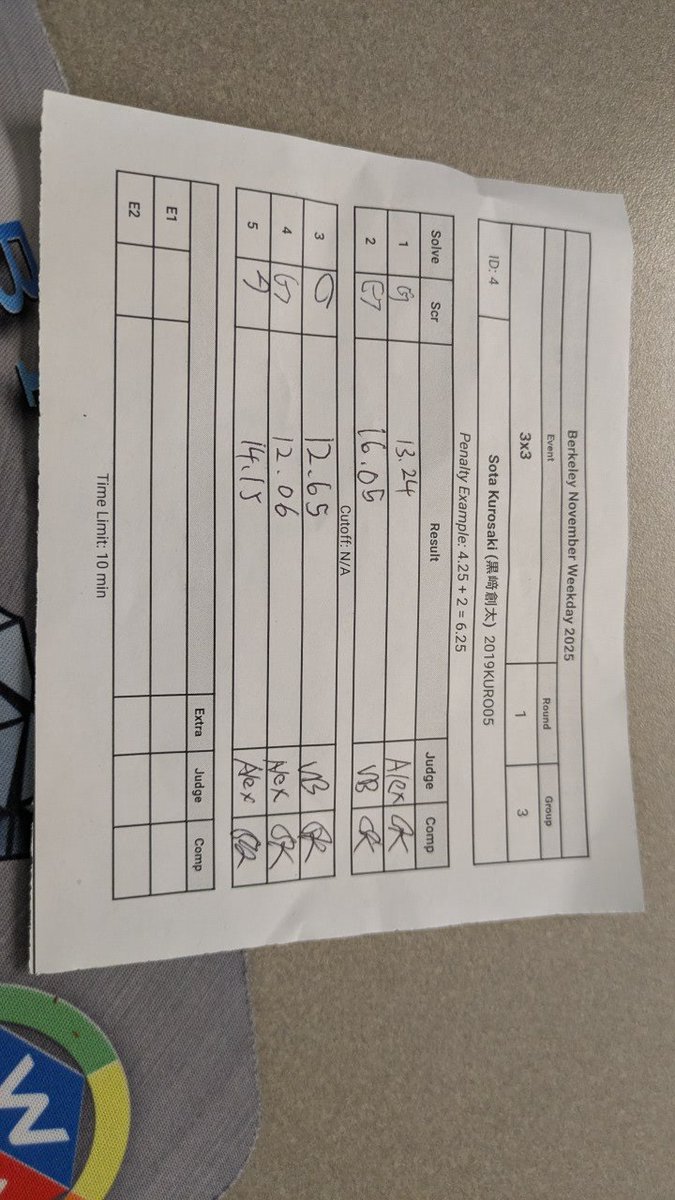 Berkeley November Weekday 2025
Event Round Group
3x3 1 3
ID: 4 Sota Kurosaki (黒﨑創太) 2019KURO05
Penalty Example: 4.25 + 2 = 6.25
Solve Scr Result Judge Comp
1 G 13.24 Alex SK
2 G 16.05 VB SK
Cutoff: N/A
3 12.65 VB SK
4 G 12.06 Alex SK
5 A 14.15 Alex SK
Extra Judge Comp
E1
E2
Time Limit: 10 min
W